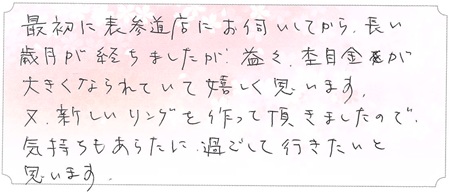 最初に表参道店にお伺いしてから、長い
歳月が経ちましたが、益々、杢目金屋が
大きくなられていて嬉しく思います。
又、新しいリングを作って頂きましたので、
気持ちもあらたに、過ごして行きたいと
思います。